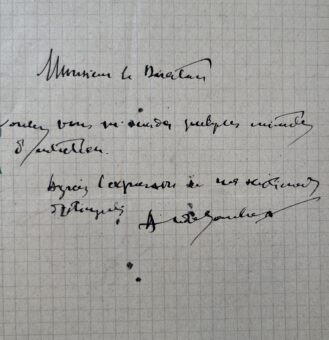 Monsieur le Directeur
voulez vous m'accorder quelques minutes
d'entretien.
Agréez l'expression de mes sentiments
distingués